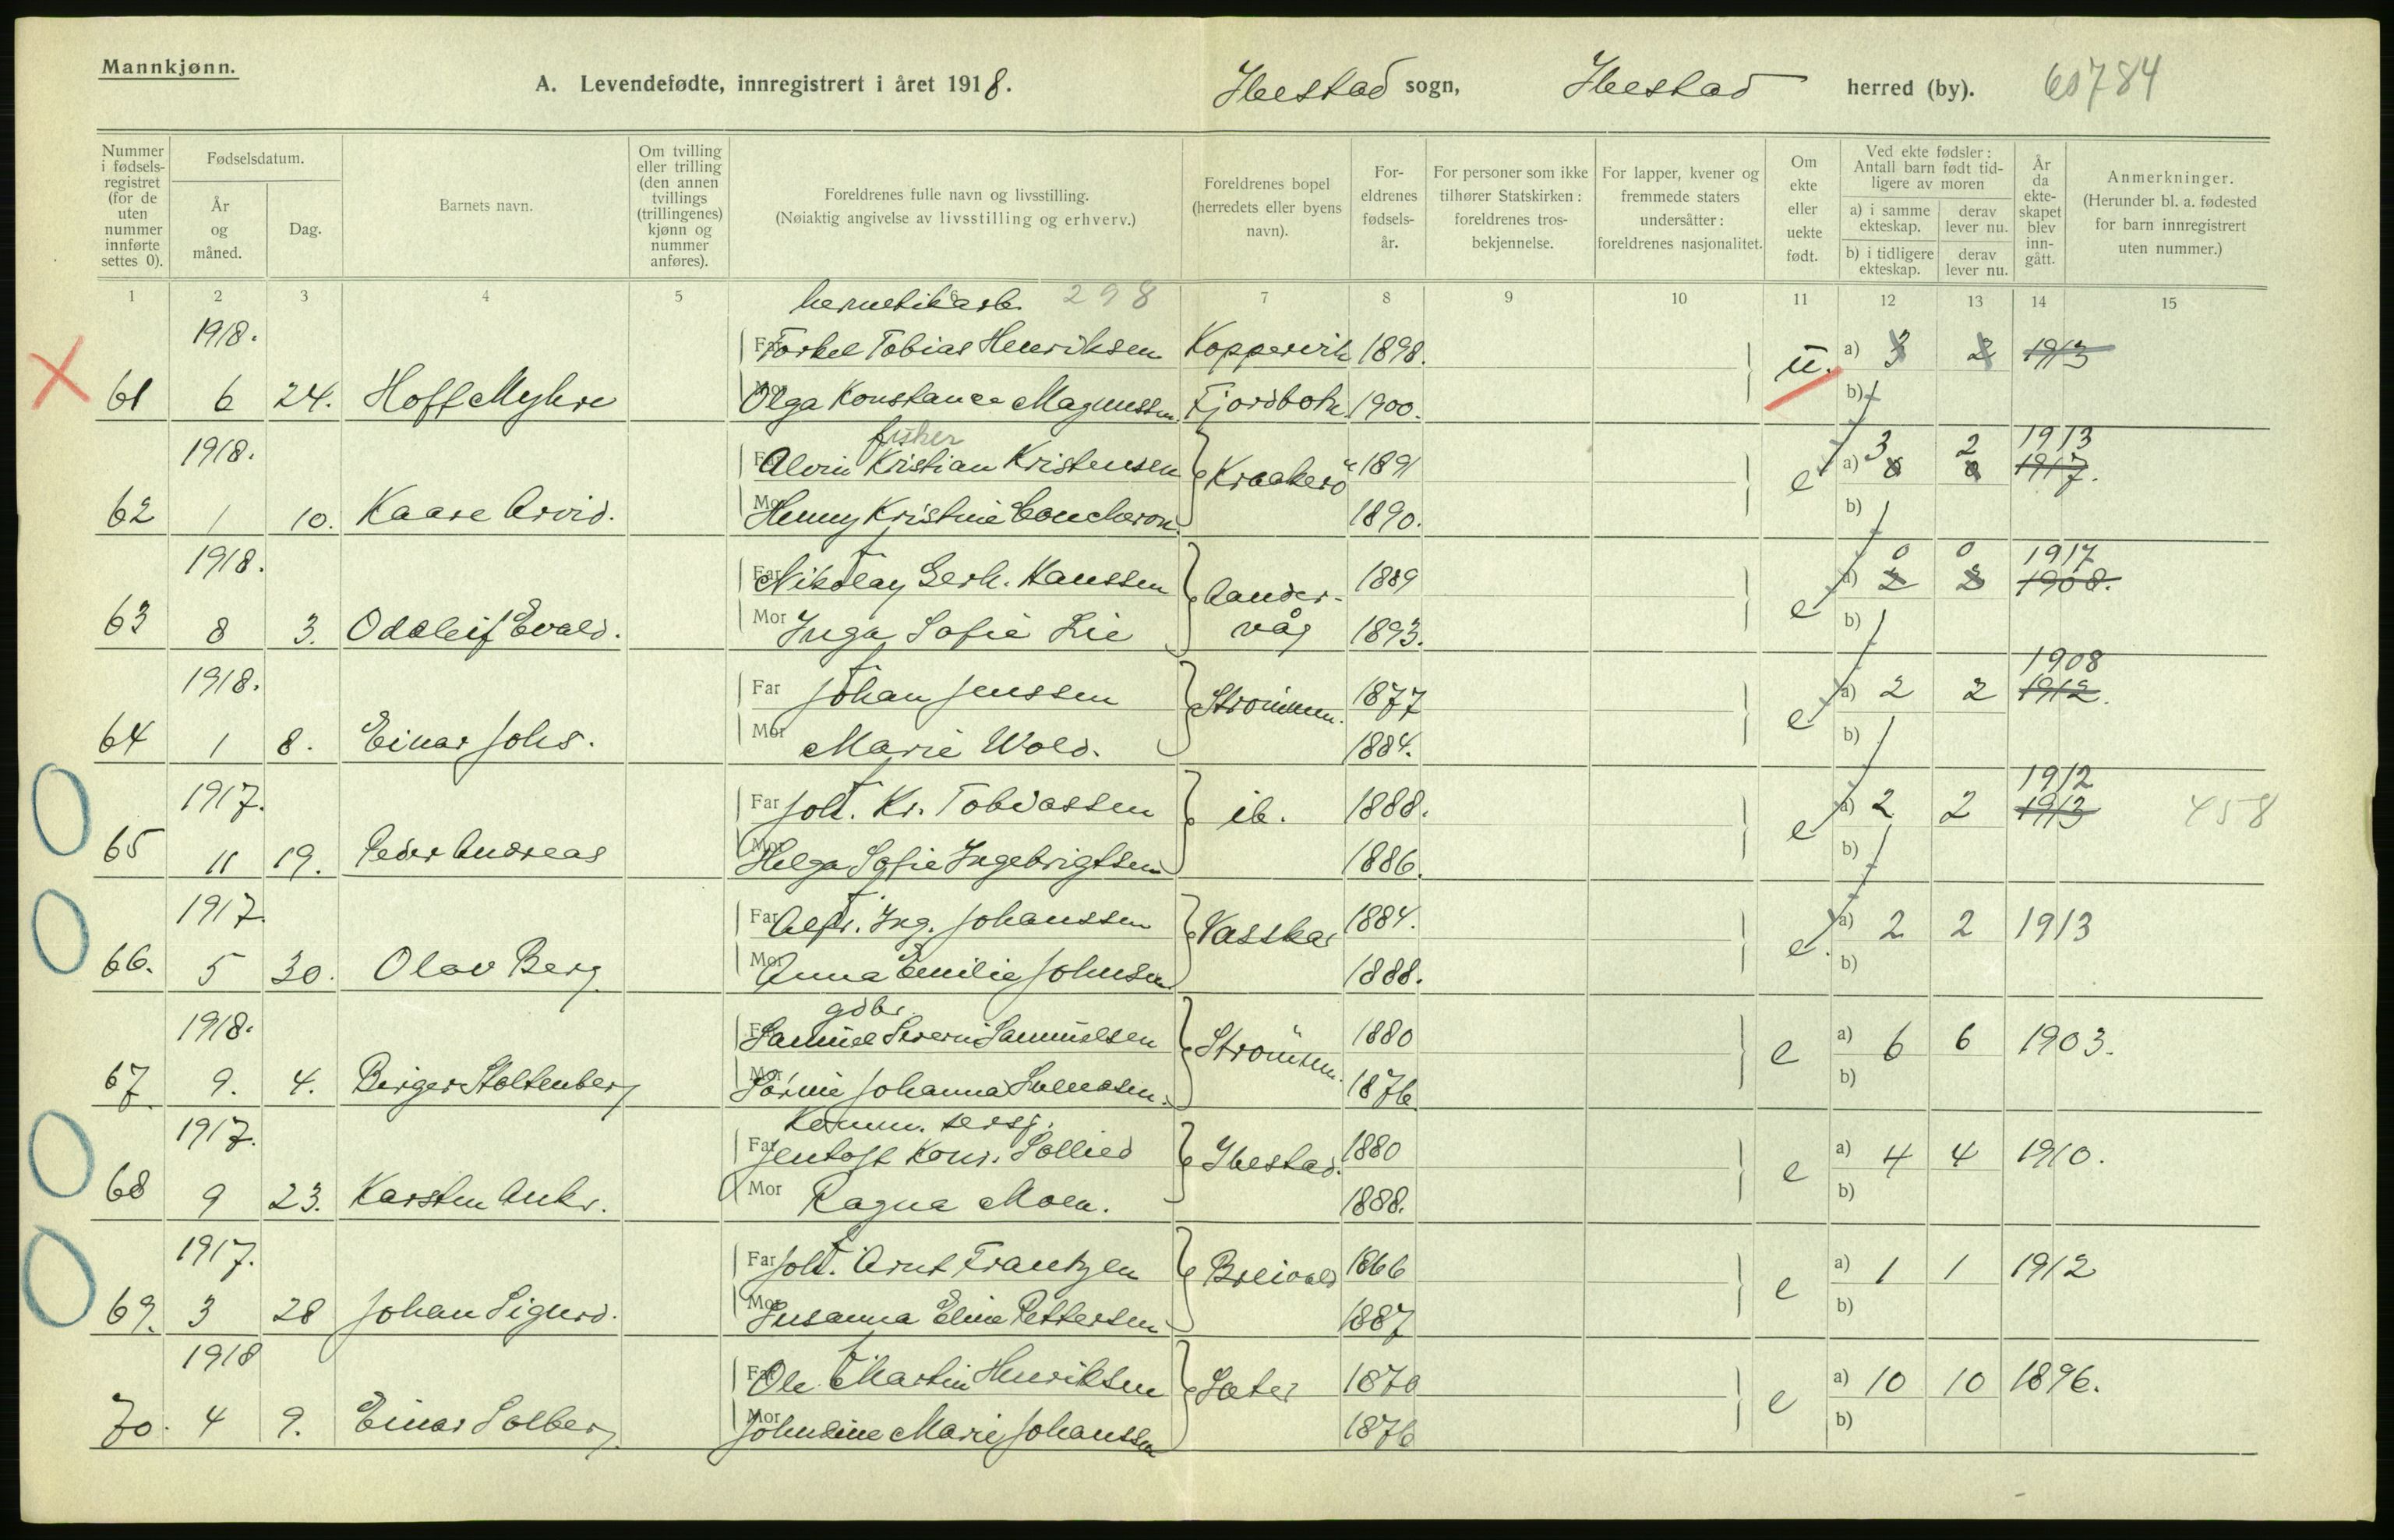 Mannkjønn.
A. Levendefødte, innregistrert i året 1918. Ibestad sogn, Ibestad herred (by). 60784
Nummer i fødselsregistret (for de uten nummer innførte settes 0).
Fødselsdatum.
År og måned.
Dag.
Barnets navn.
Om tvilling eller trilling (den annen tvillings (trillingenes) kjønn og nummer anføres).
Foreldrenes fulle navn og livsstilling.
(Nøiaktig angivelse av livsstilling og erhverv.)
Foreldrenes bopel (herredets eller byens navn).
Foreldrenes fødselsår.
For personer som ikke tilhører Statskirken: foreldrenes trosbekjennelse.
For lapper, kvener og fremmede staters undersåtter: foreldrenes nasjonalitet.
Om ekte eller uekte født.
Ved ekte fødsler: Antall barn født tidligere av moren
a) i samme ekteskap.
derav lever nu.
b) i tidligere ekteskap.
derav lever nu.
År da ekteskapet blev inngått.
Anmerkninger.
(Herunder bl. a. fødested for barn innregistrert uten nummer.)
1 2 3 4 5 6 7 8 9 10 11 12 13 14 15
298
1918. Far Torkel Tobias Henriksen Koppervik 1898. u. a) 3 2 1913
61 6 24. Hoff Myhre Mor Olga Konstance Magnussen Fjordbotn 1900. b)
fisker 3 2 1913
1918. Far Alvin Kristian Kristensen Kraakerö 1891 e a) 0 0 1917.
62 1 10. Kaare Arvid. Mor Henny Kristine Coucheron 1890. b)
f 0 0 1917
1918. Far Nikolay Gerh. Hanssen Aander- 1889 e a) 2 2 1908.
63 8 3. Oddleif Evald. Mor Inga Sofie Lie våg 1893. b)
f 1908
1918. Far Johan Jenssen Strömmen. 1877 e a) 2 2 1912.
64 1 8. Einar Johs. Mor Marie Wold. 1884. b)
f 1912
1917. Far Joh. Kr. Tobiassen ib. 1888. e a) 2 2 1913 458
65 11 19. Peder Andreas Mor Helga Sofie Ingebrigtsen 1886. b)
f
1917. Far Alfr. Ing. Johanssen Vasskar 1884. e. a) 2 2 1913
66. 5 30. Olav Berg Mor Anna Emilie Johnsen 1888. b)
gdbr.
1918. Far Samuel Severin Samuelsen Strömmen. 1880 e a) 6 6 1903.
67 9. 4. Birger Stoltenberg Mor Sörine Johanna 1876 b)
Komm. sersj.
1917. Far Jentoft Konr. Sollied Ibestad. 1880 e a) 4 4 1910.
68 9 23. Karsten Ankr. Mor Ragna Moen. 1888. b)
f
1917. Far Joh. Arnt Frantzen Breivold 1866 e a) 1 1 1912
69. 3 28 Johan Sigurd. Mor Susanna Eline Pettersen 1887 b)
f
1918 Far Ole Martin Henriksen Sæter 1870 e a) 10 10 1896.
70. 4 9. Einar Solberg. Mor Johndine Marie Johanssen 1876 b)